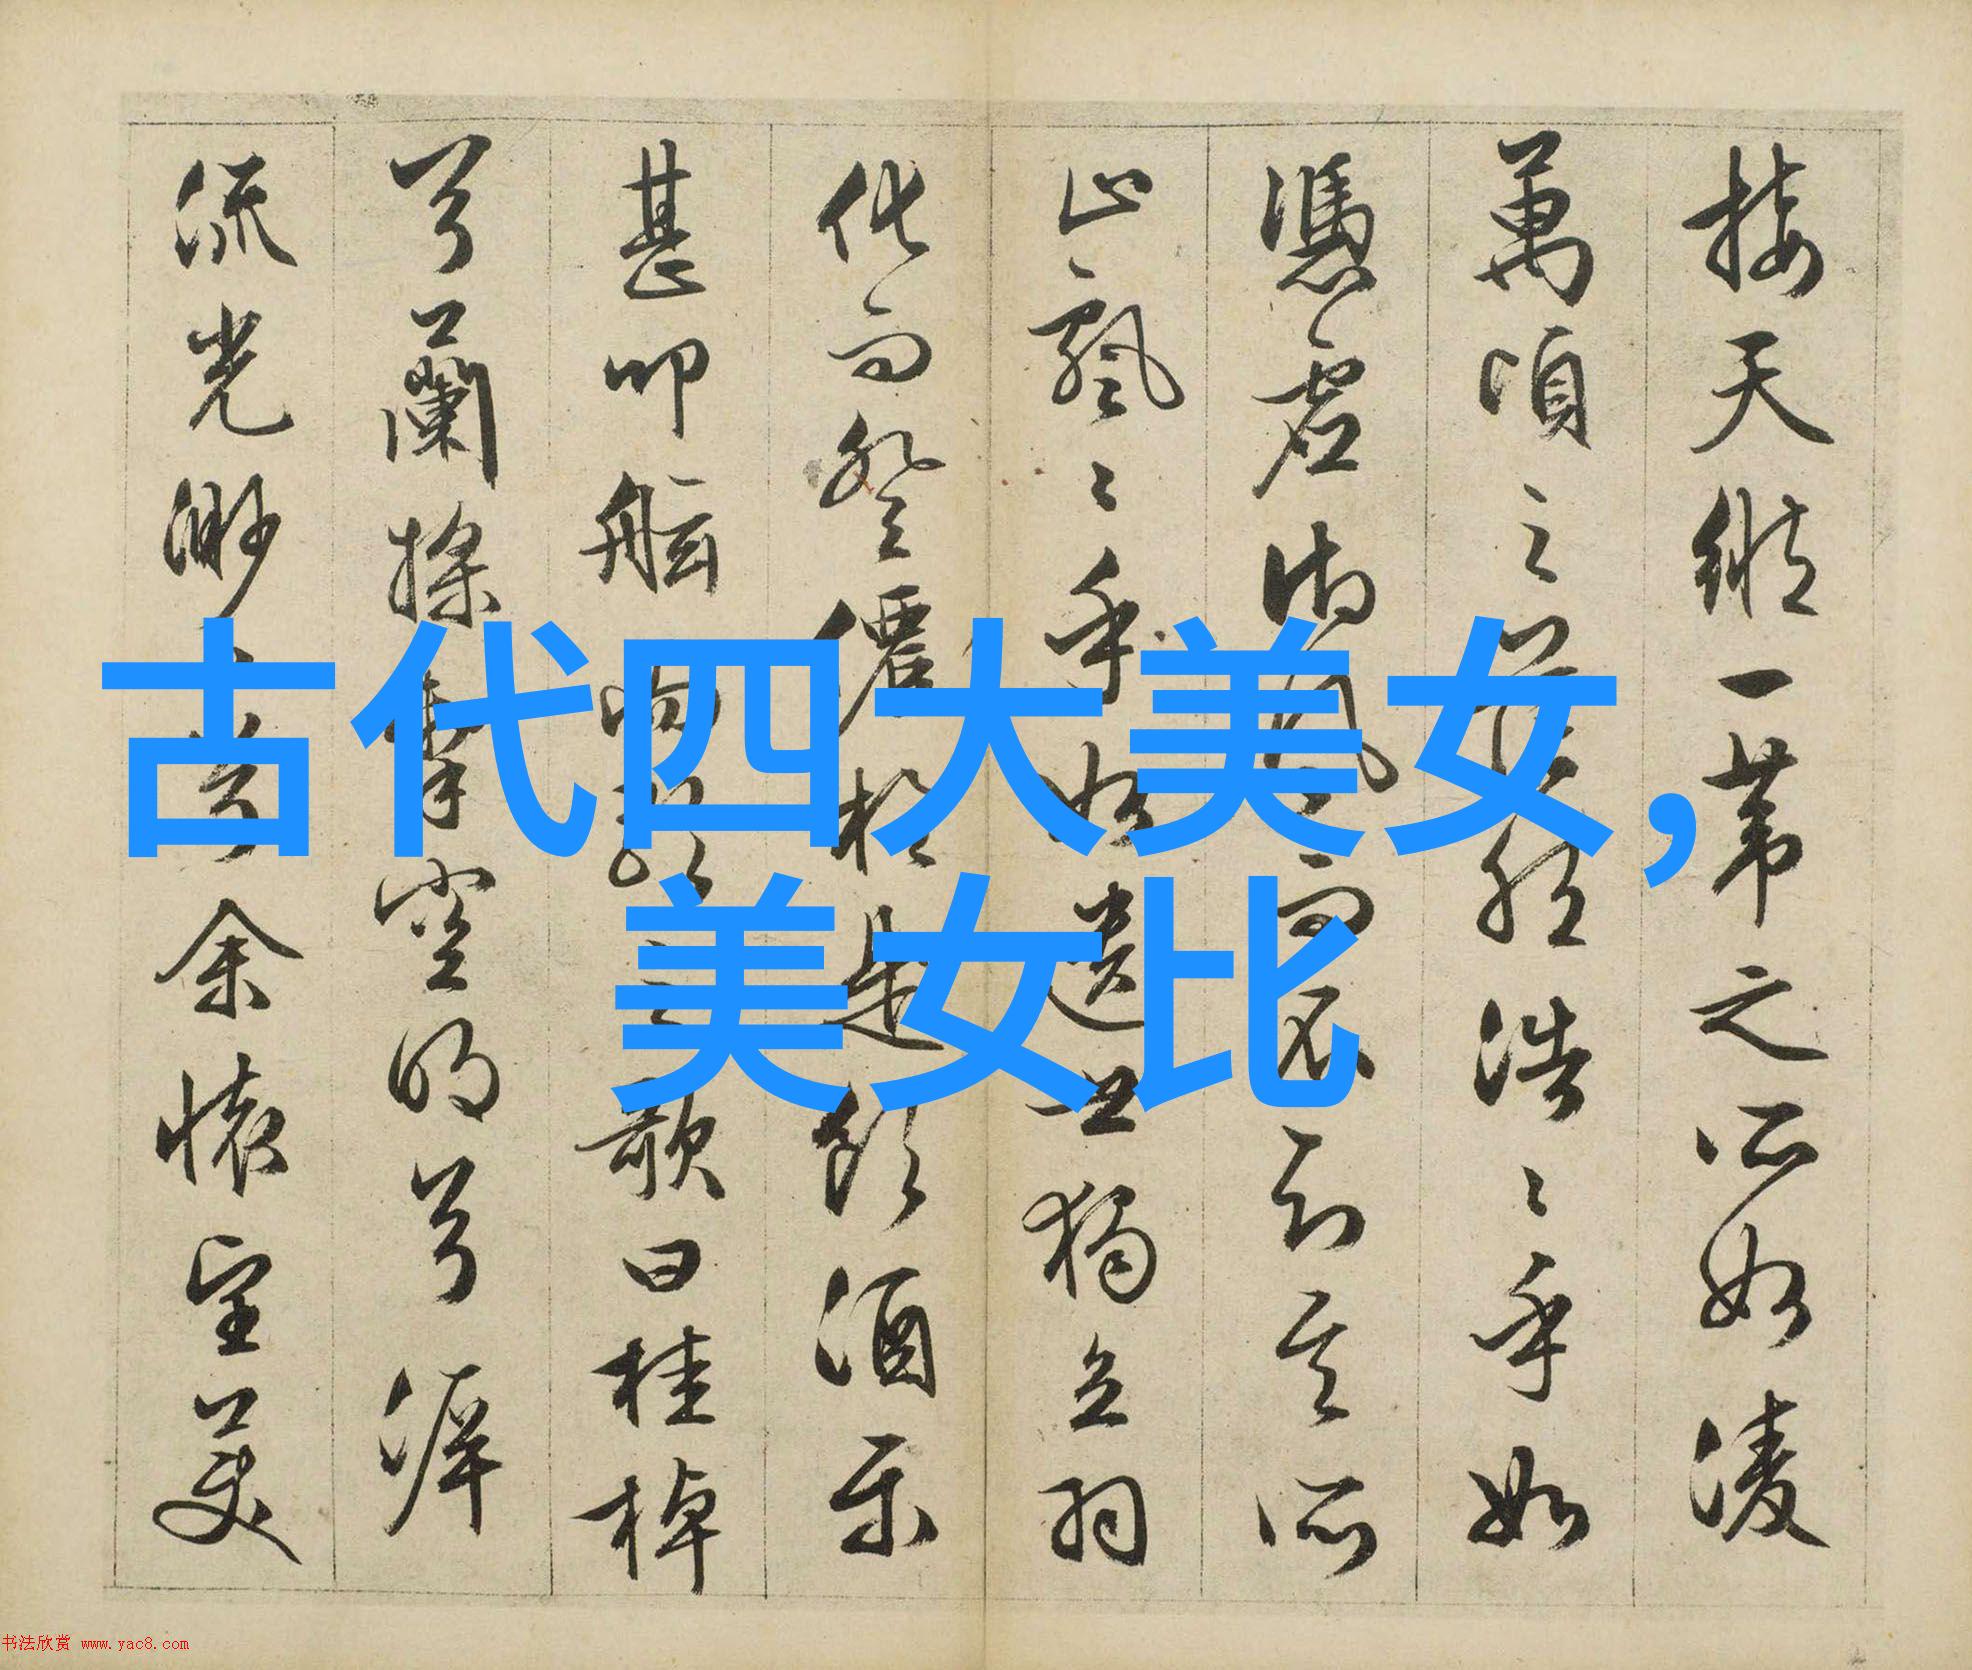 接天縱一葦之所如淩
萬頃之茫然浩〻乎如
憑虛御風而不知其所
止飄〻乎如遺世獨立羽
化而登僊於是飲酒樂
甚叩舷而歌之歌曰桂棹
兮蘭槳擊空明兮泝
流光渺〻兮余懷望美
古代四大美女,
美女比
书法欣赏 www.yac8.com